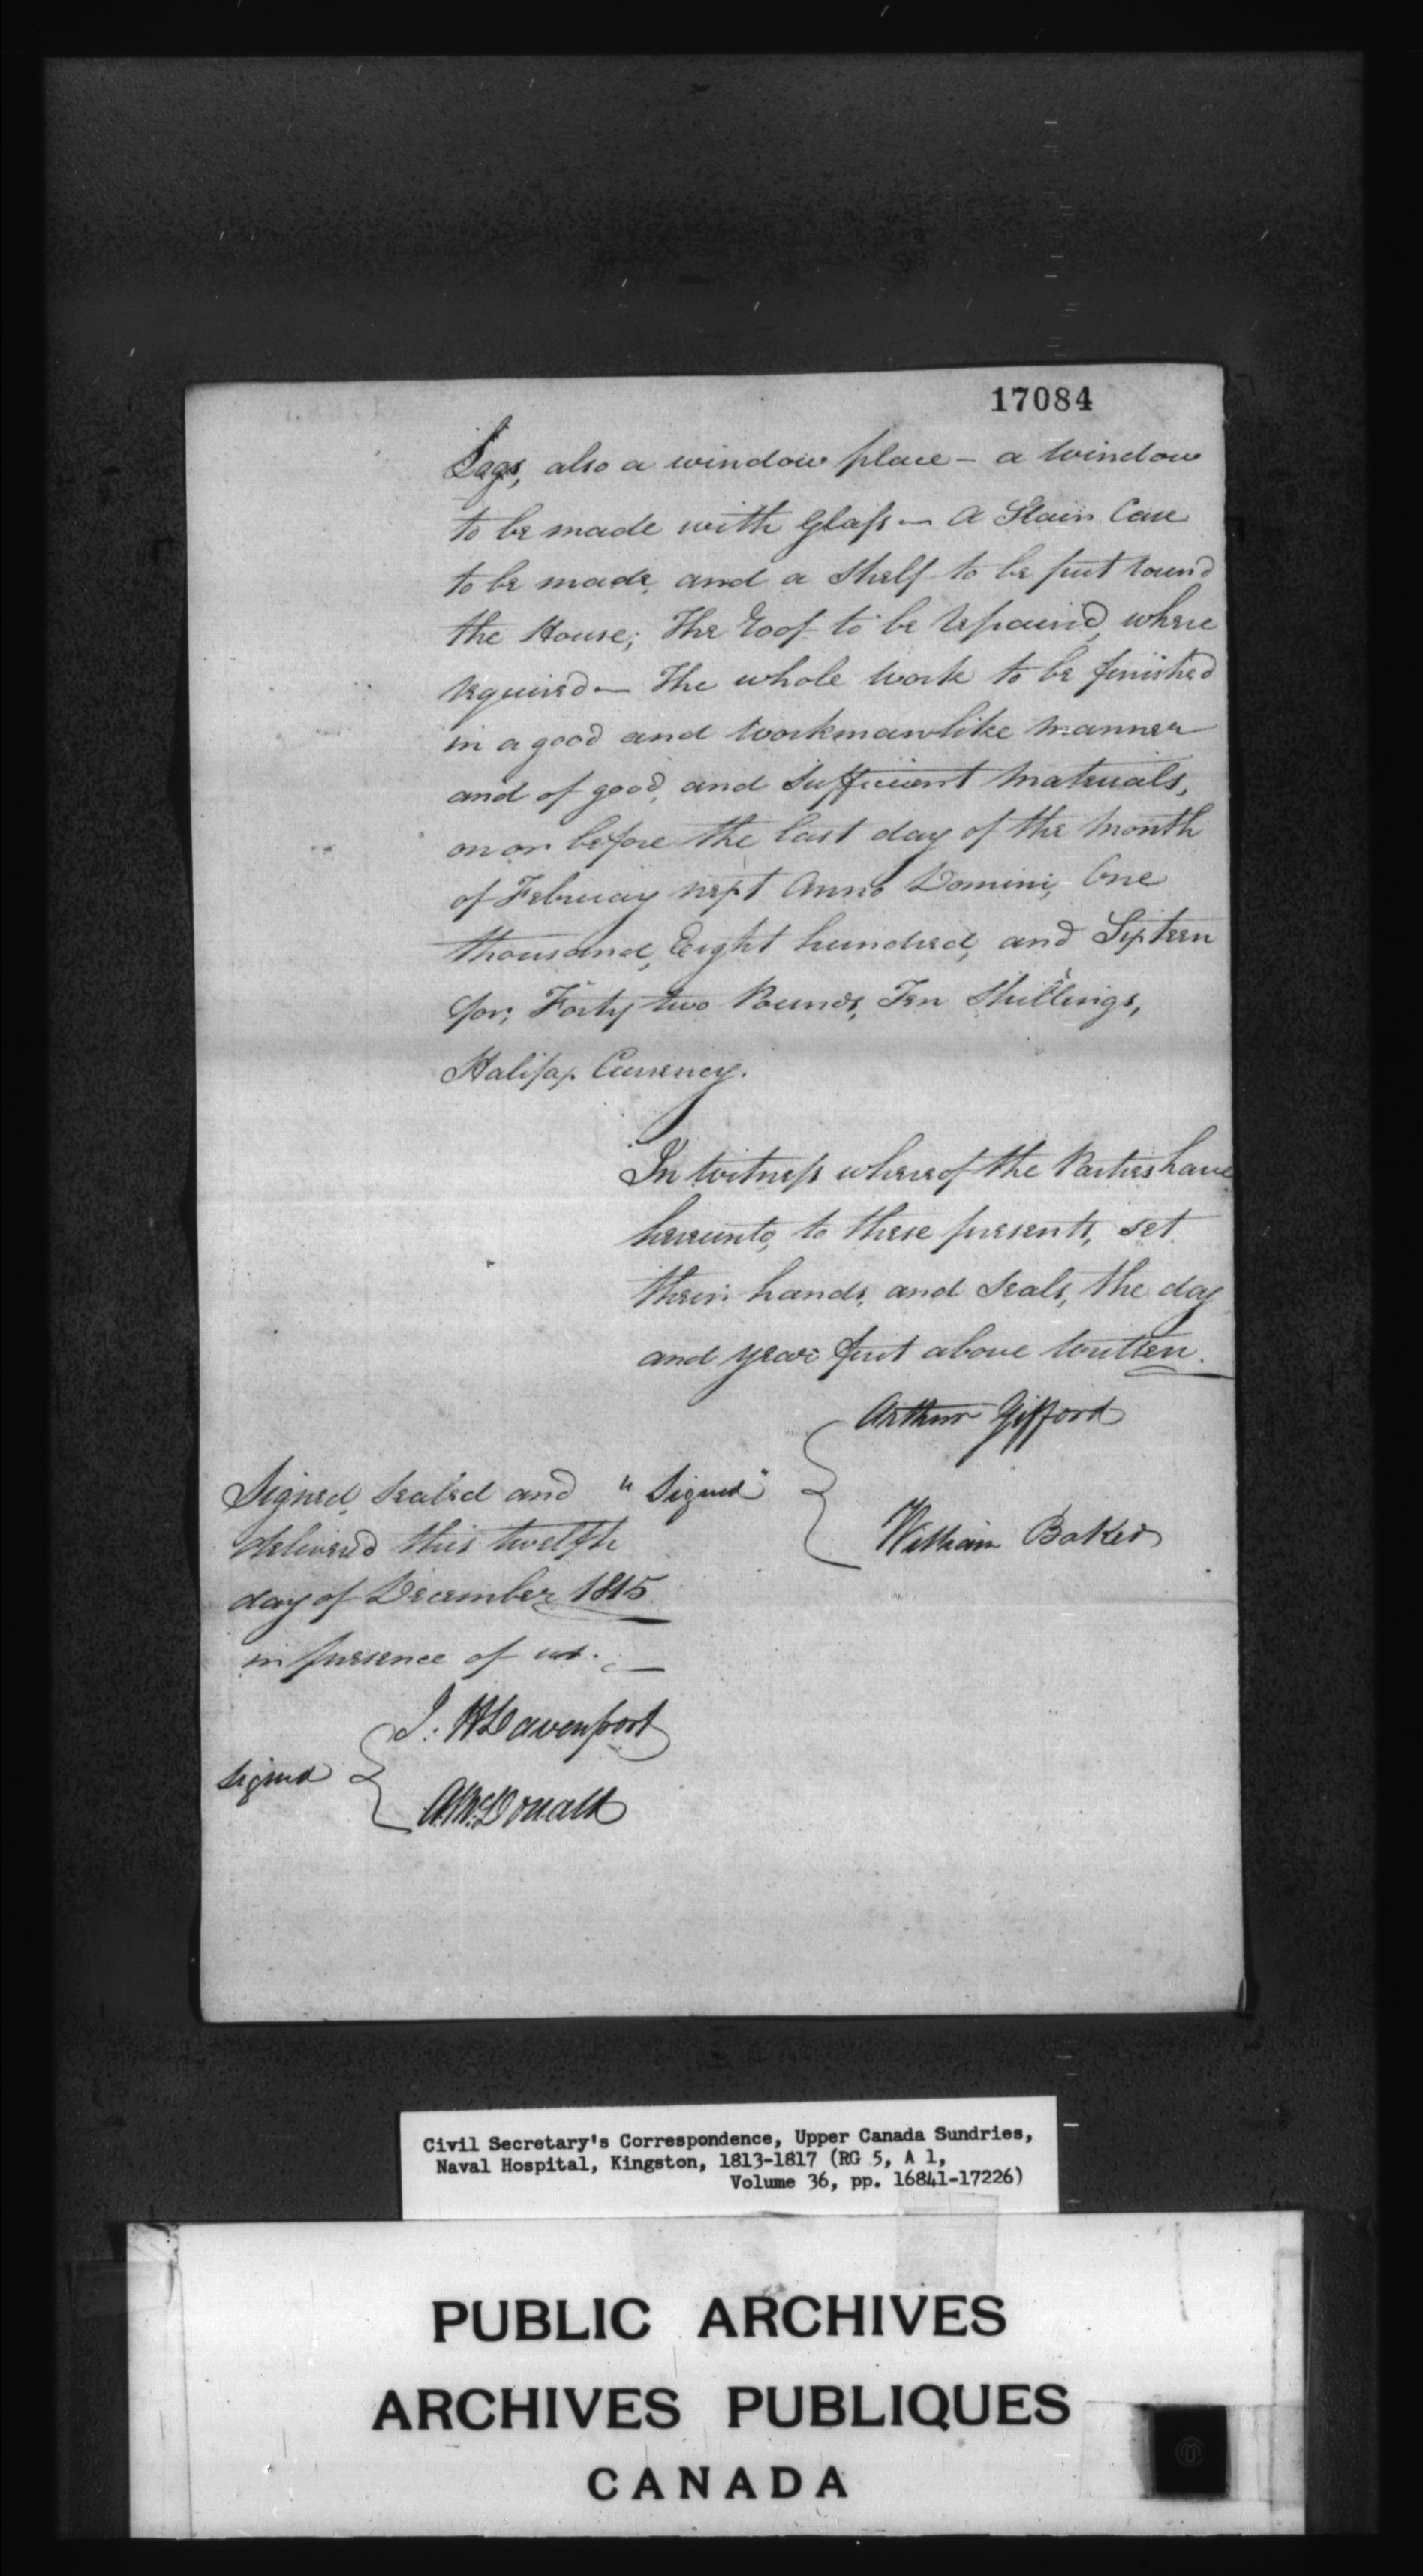 17084
Logs, also a window place - a window
to be made with Glass - A Stair Case
to be made, and a Shelf to be put round
the House; The roof to be repaired, where
required - The whole work to be finished
in a good and workmanlike manner
and of good, and Sufficient Materials,
on or before the last day of the Month
of February next Anno Domini, One
thousand, Eight hundred, and Sixteen
for; Forty two Pounds, Ten Shillings,
Halifax Currency.
In witness whereof the Parties have
hereunto, to these presents, set
their hands, and Seals, the day
and year first above written.
Arthur Gifford
Signed, Sealed and "Signed"
William Baker
delivered this twelfth
day of December 1815
in presence of us. -
J. H Davenport
Signed
A. McDonald
Civil Secretary's Correspondence, Upper Canada Sundries,
Naval Hospital, Kingston, 1813-1817 (RG 5, A 1,
Volume 36, pp. 16841-17226)
PUBLIC ARCHIVES
ARCHIVES PUBLIQUES
CANADA